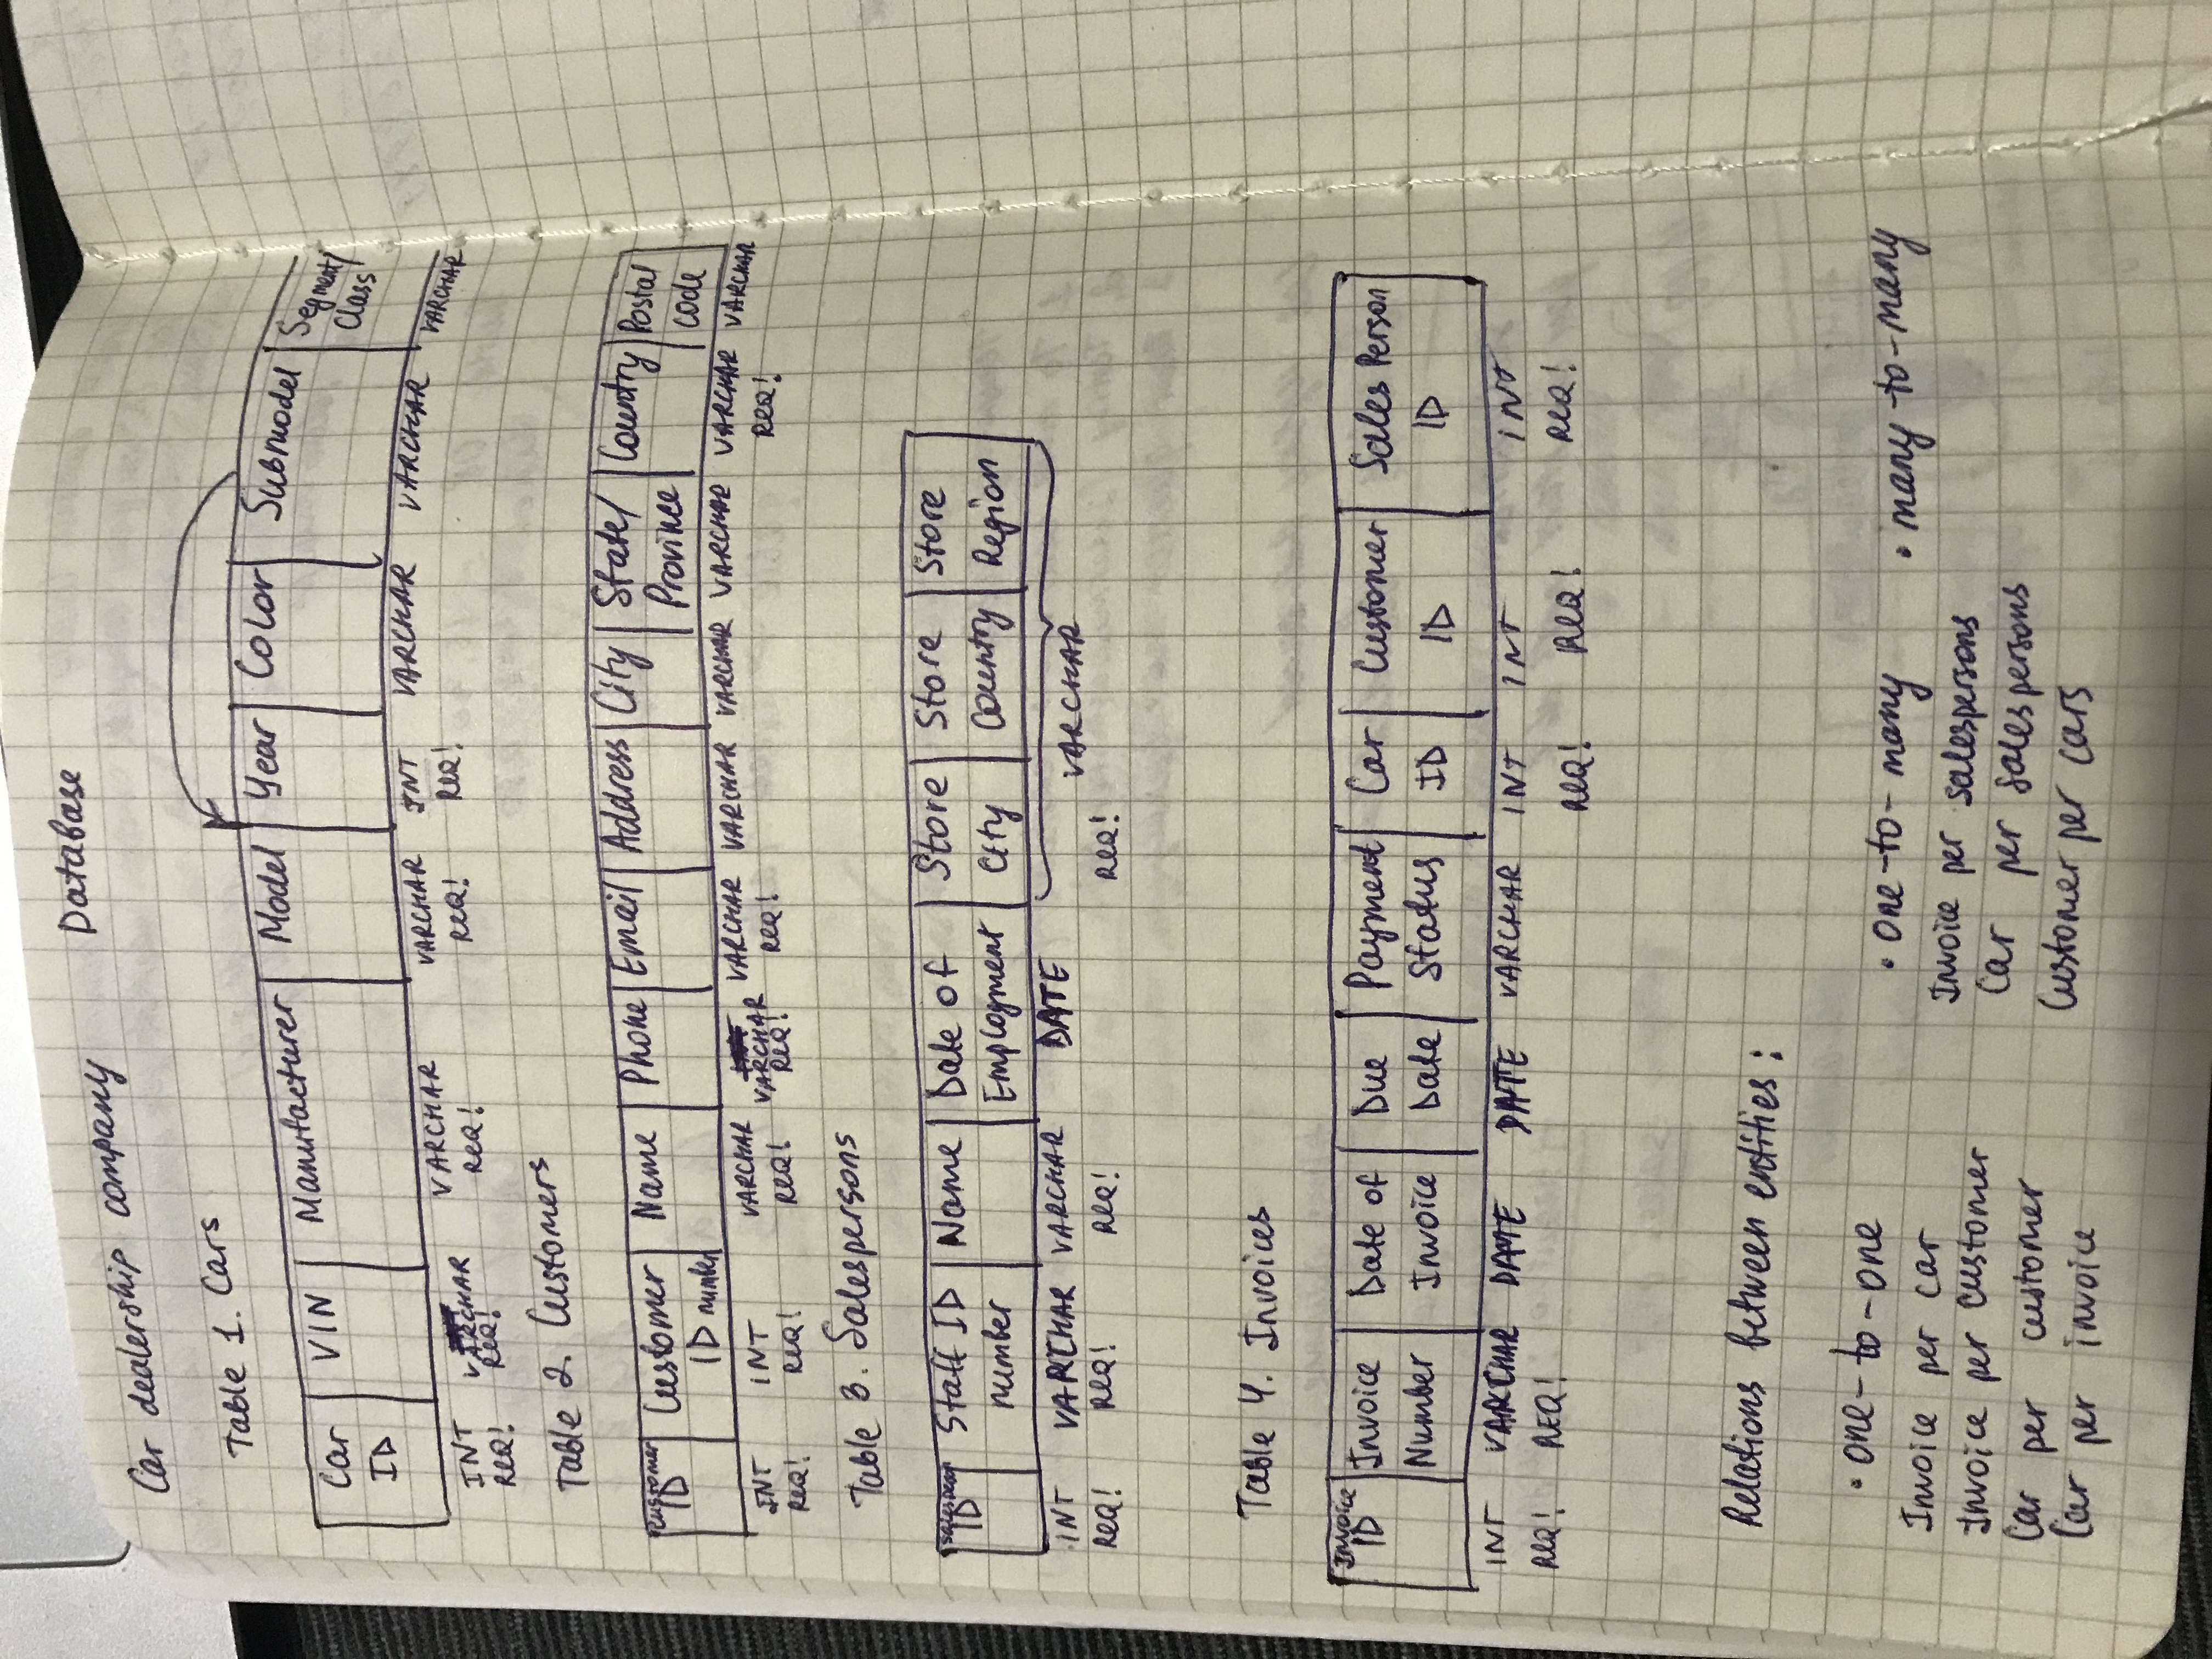 Database
Car dealership company
Table 1. Cars
Car ID | VIN | Manufacturer | Model | Year | Color | Submodel | Segment/Class
INT | VARCHAR | VARCHAR | VARCHAR | INT | VARCHAR | VARCHAR | VARCHAR
REQ! | REQ! | REQ! | REQ! | REQ!
Table 2. Customers
Customer ID | Customer ID number | Name | Phone | Email | Address | City | State/Province | Country | Postal code
INT | INT | VARCHAR | VARCHAR | VARCHAR | VARCHAR | VARCHAR | VARCHAR | VARCHAR | VARCHAR
REQ! | REQ! | REQ! | REQ! | REQ! | REQ!
Table 3. Salespersons
Salesperson ID | Staff ID number | Name | Date of Employment | Store City | Store Country | Store Region
INT | VARCHAR | VARCHAR | DATE | VARCHAR
REQ! | REQ! | REQ! | REQ!
Table 4. Invoices
Invoice ID | Invoice Number | Date of Invoice | Due Date | Payment Status | Car ID | Customer ID | Sales Person ID
INT | VARCHAR | DATE | DATE | VARCHAR | INT | INT | INT
REQ! | REQ! | REQ! | REQ! | REQ!
Relations between entities:
• one-to-one
Invoice per car
Invoice per customer
Car per customer
Car per invoice
• one-to-many
Invoice per salespersons
Car per salespersons
Customer per cars
• many-to-many